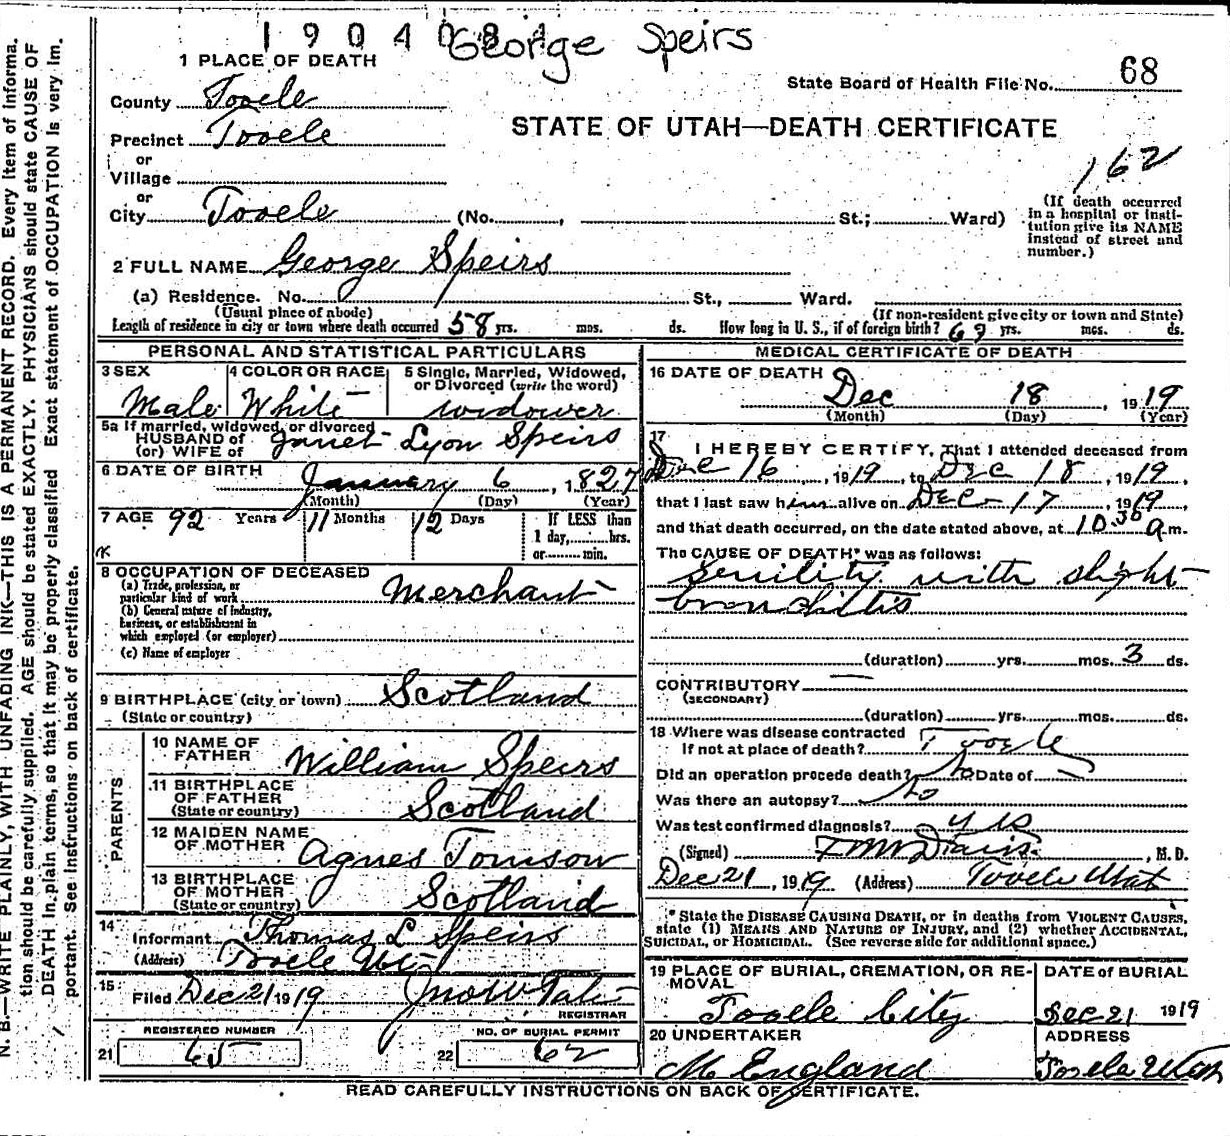 1904084
George Speirs
1 PLACE OF DEATH
State Board of Health File No. 68
County Tooele
STATE OF UTAH—DEATH CERTIFICATE
Precinct Tooele
162
or
Village
or
City Tooele (No. , St.; Ward)
(If death occurred in a hospital or institution give its NAME instead of street and number.)
2 FULL NAME George Speirs
(a) Residence. No. St., Ward.
(Usual place of abode) (If non-resident give city or town and State)
Length of residence in city or town where death occurred 58 yrs. mos. ds. How long in U. S., if of foreign birth? 69 yrs. mos. ds.
PERSONAL AND STATISTICAL PARTICULARS
3 SEX
Male
4 COLOR OR RACE
White
5 Single, Married, Widowed, or Divorced (write the word)
widower
5a If married, widowed, or divorced
HUSBAND of
(or) WIFE of Janet Lyon Speirs
6 DATE OF BIRTH
January 6, 1827
(Month) (Day) (Year)
7 AGE 92 Years 11 Months 12 Days
If LESS than
1 day, hrs.
or min.
8 OCCUPATION OF DECEASED
(a) Trade, profession, or
particular kind of work Merchant
(b) General nature of industry,
business, or establishment in
which employed (or employer)
(c) Name of employer
9 BIRTHPLACE (city or town) Scotland
(State or country)
PARENTS
10 NAME OF
FATHER William Speirs
11 BIRTHPLACE
OF FATHER Scotland
(State or country)
12 MAIDEN NAME
OF MOTHER Agnes Tomson
13 BIRTHPLACE
OF MOTHER Scotland
(State or country)
14
Informant Thomas L Speirs
(Address) Tooele Ut
15
Filed Dec 21 1919
REGISTRAR
REGISTERED NUMBER
21 65
NO. OF BURIAL PERMIT
22 62
MEDICAL CERTIFICATE OF DEATH
16 DATE OF DEATH
Dec 18, 1919
(Month) (Day) (Year)
17
I HEREBY CERTIFY, That I attended deceased from
Dec 16, 1919, to Dec 18, 1919,
that I last saw him alive on Dec 17 1919
and that death occurred, on the date stated above, at 10.30 a m.
The CAUSE OF DEATH* was as follows:
senility with slight
bronchittis
(duration) yrs. mos. 3 ds.
CONTRIBUTORY —
(SECONDARY)
(duration) yrs. mos. ds.
18 Where was disease contracted
If not at place of death? Tooele
Did an operation precede death? No Date of
Was there an autopsy? No
Was test confirmed diagnosis? yes
(Signed) Davis, M. D.
Dec 21, 1919 (Address) Tooele Utah
* State the DISEASE CAUSING DEATH, or in deaths from VIOLENT CAUSES,
state (1) MEANS AND NATURE OF INJURY, and (2) whether ACCIDENTAL,
SUICIDAL, or HOMICIDAL. (See reverse side for additional space.)
19 PLACE OF BURIAL, CREMATION, OR RE-
MOVAL
Tooele City
DATE of BURIAL
Dec 21 1919
20 UNDERTAKER
M England
ADDRESS
Tooele Utah
READ CAREFULLY INSTRUCTIONS ON BACK OF CERTIFICATE.
N. B.—WRITE PLAINLY, WITH UNFADING INK—THIS IS A PERMANENT RECORD. Every item of informa-
tion should be carefully supplied. AGE should be stated EXACTLY. PHYSICIANS should state CAUSE OF
DEATH in plain terms, so that it may be properly classified Exact statement of OCCUPATION is very im-
portant. See instructions on back of certificate.